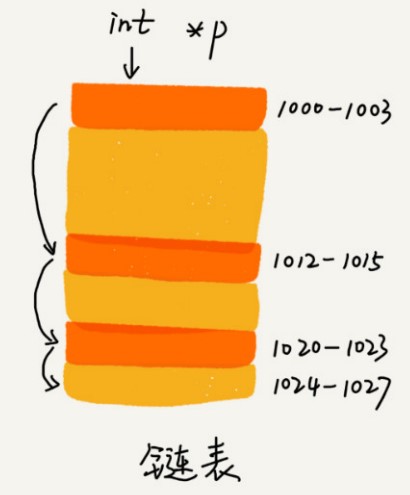 int *p
1000-1003
1012-1015
1020-1023
1024-1027
链表